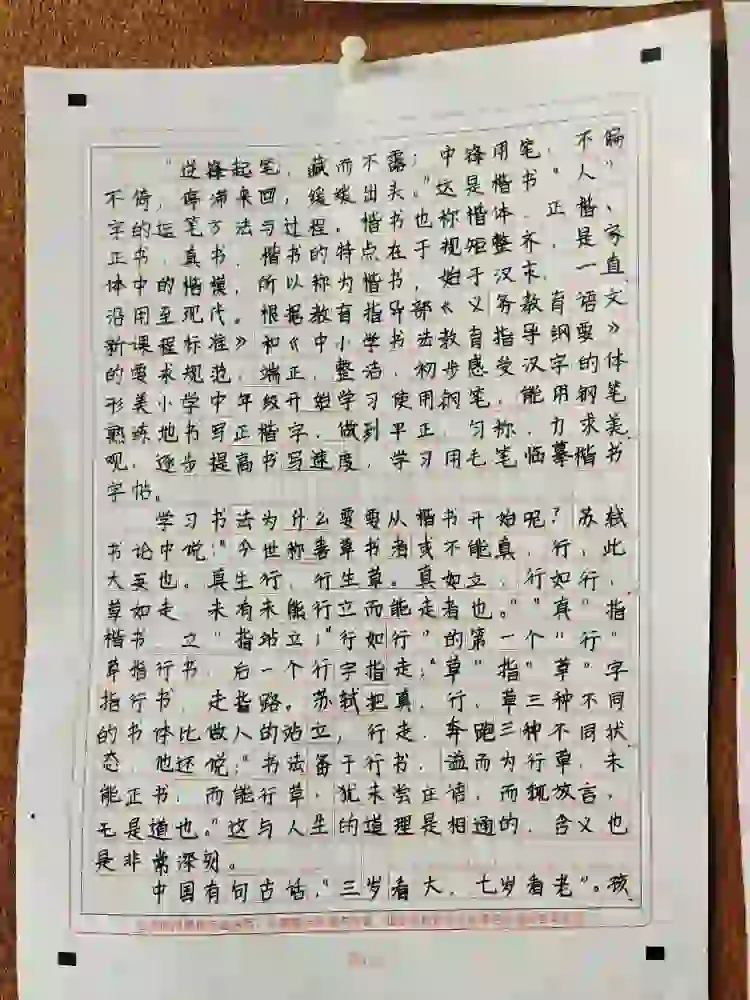 “逆锋起笔，藏而不露；中锋用笔，不偏
不倚，停滞来回，缓缓出头。”这是楷书“人”
字的运笔方法与过程。楷书也称楷体、正楷、
正书、真书，楷书的特点在于规矩整齐，是字
体中的楷模，所以称为楷书，始于汉末，一直
沿用至现代。根据教育指导部《义务教育语文
新课程标准》和《中小学书法教育指导纲要》
的要求规范，端正，整洁，初步感受汉字的体
形美小学中年级开始学习使用钢笔，能用钢笔
熟练地书写正楷字，做到平正，匀称，力求美
观，逐步提高书写速度，学习用毛笔临摹楷书
字帖。
学习书法为什么要要从楷书开始呢？苏轼
书论中说：“今世称善草书者或不能真，行，此
大妄也。真生行，行生草。真如立，行如行，
草如走，未有未能行立而能走者也。”“真”指
楷书，立“指站立；“行如行”的第一个“行”
草指行书，后一个行字指走；“草”指“草”字
指行书，走指路。苏轼把真，行，草三种不同
的书体比做人的站立，行走，奔跑三种不同状
态，他还说：“书法备于行书，溢而为行草，未
能正书，而能行草，犹未尝庄语，而辄放言，
无是道也。”这与人生的道理是相通的，含义也
是非常深刻。
中国有句古话，“三岁看大，七岁看老”。孩